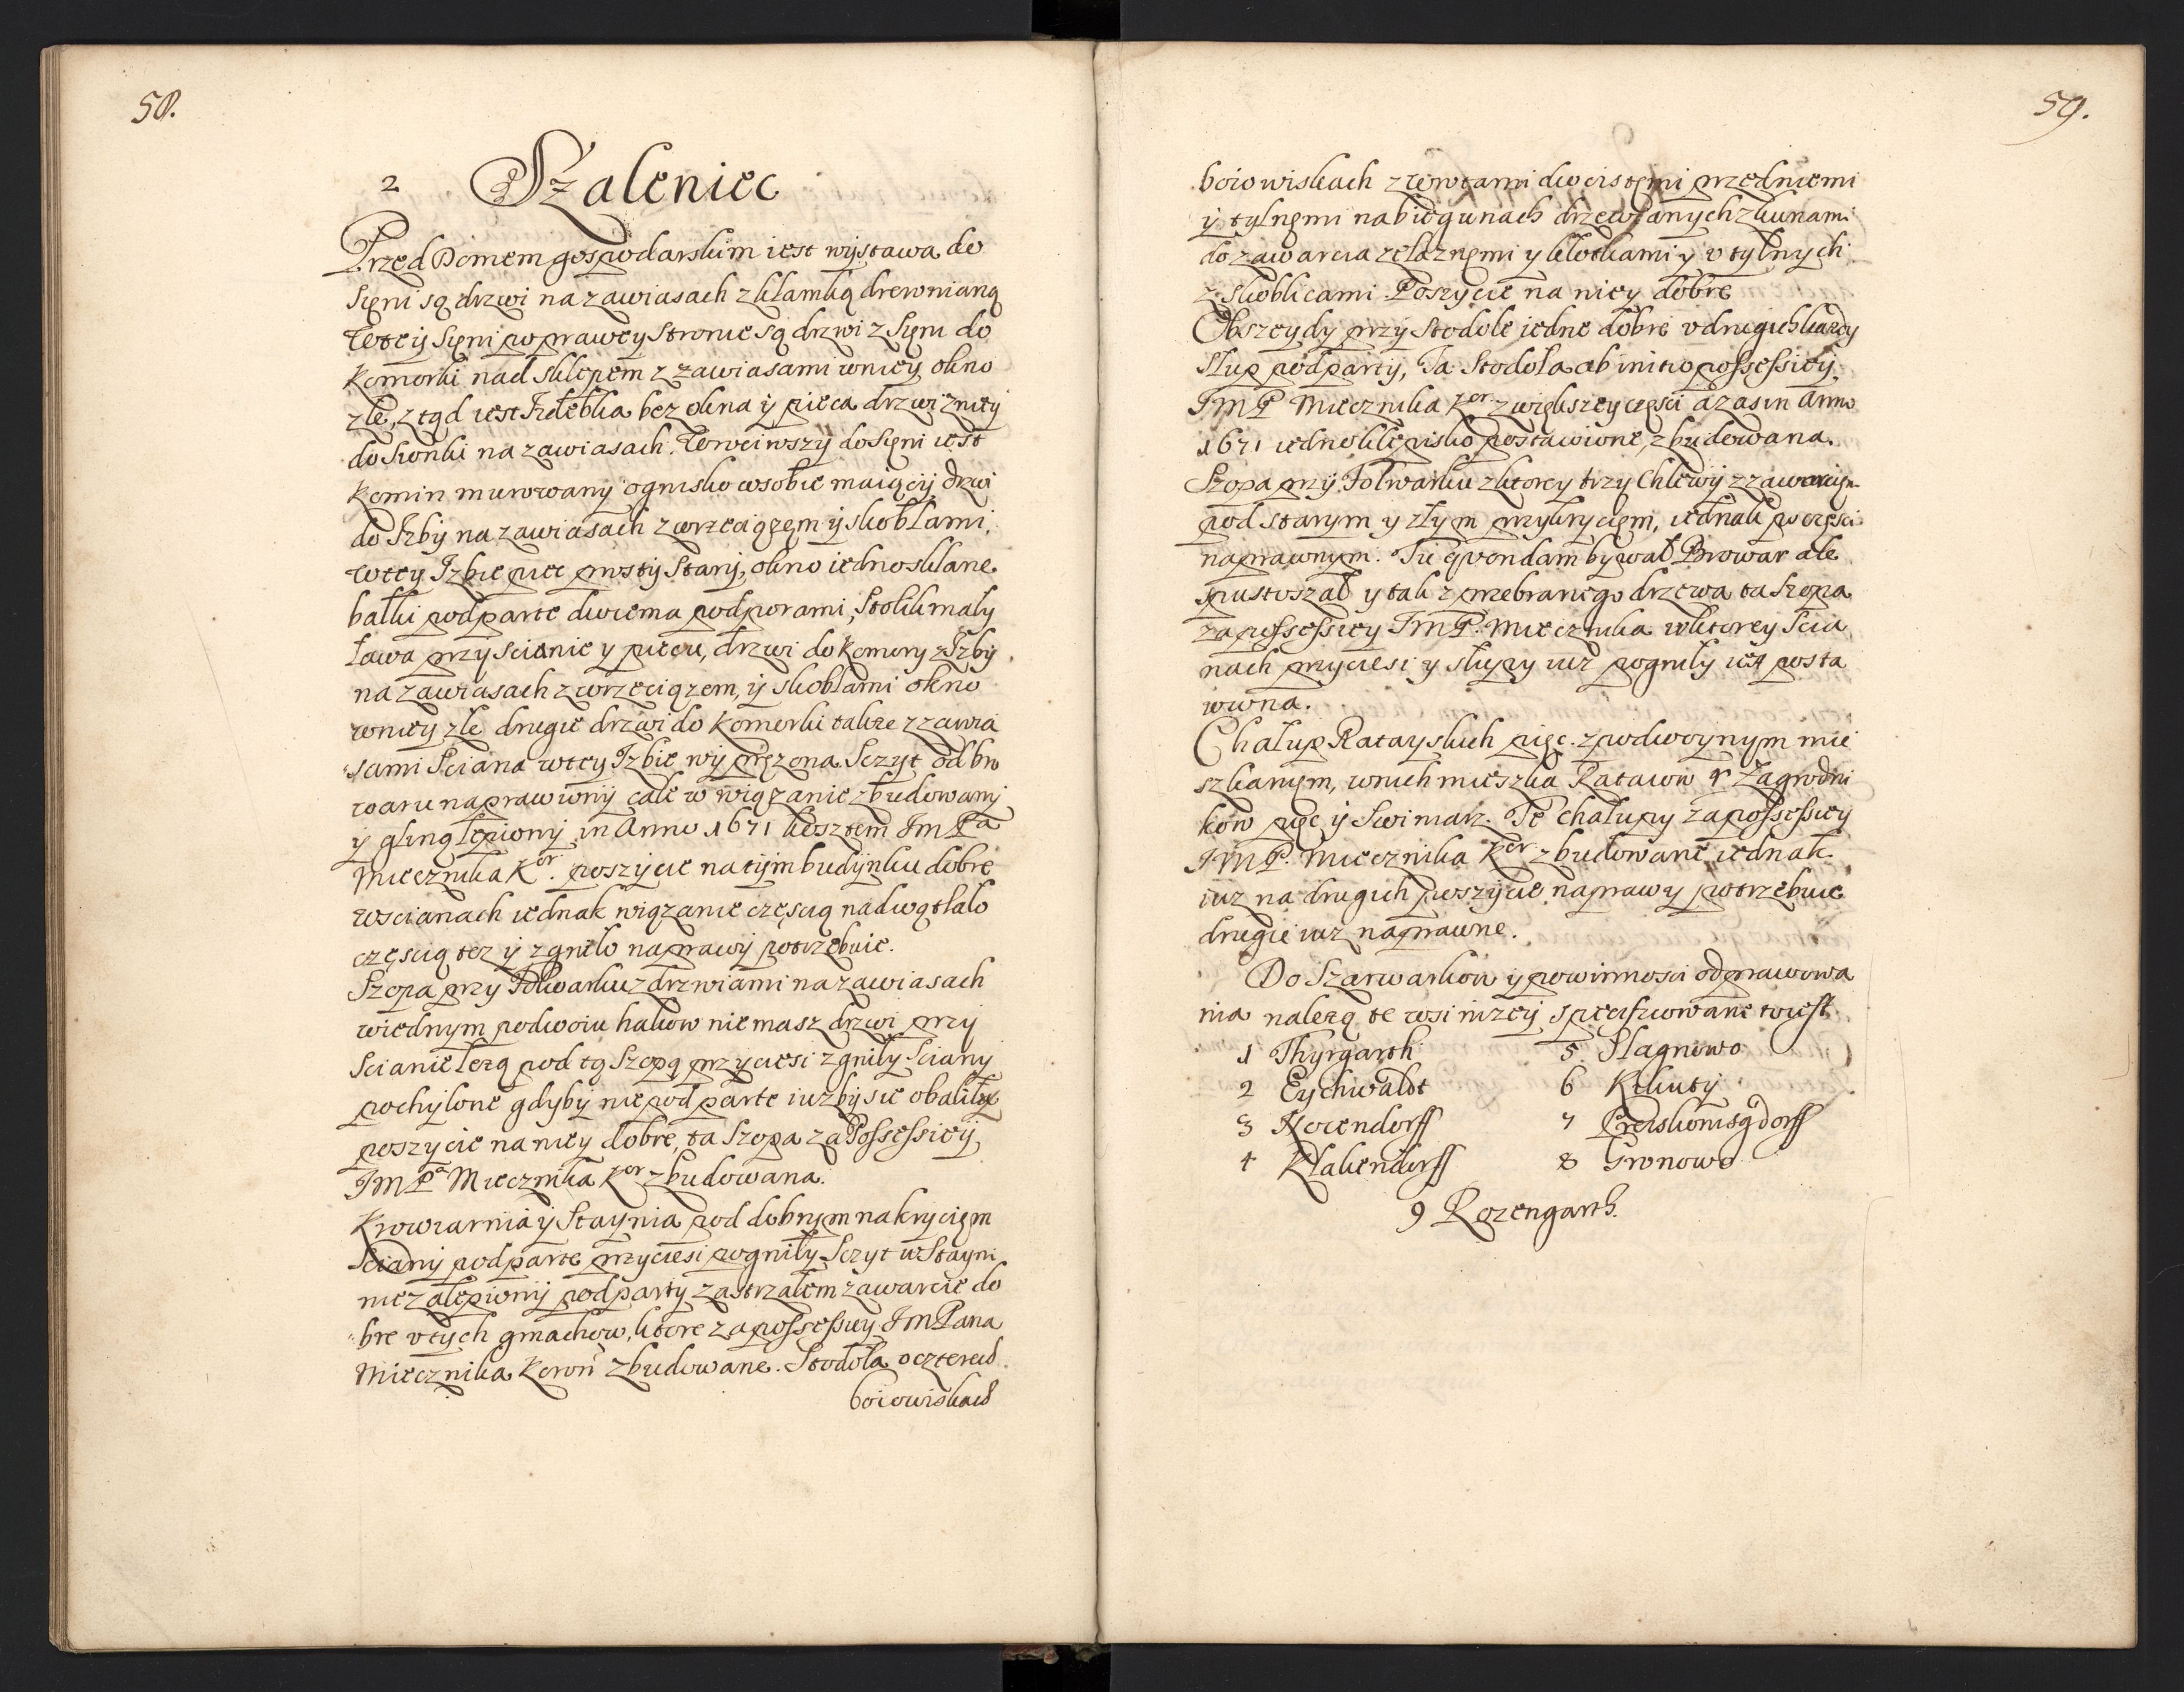 58.
2 Szaleniec
Przed Domem gospodarskim iest wystawa do
Sięni są drzwi na zawiasach z klamką drewnianą
w tey Sięni po prawey stronie są drzwi z Sięni do
Komorki nad Sklepem z zawiasami w niey okno
złe, z tąd iest Izdebka bez okna y pieca drzwi z niey
do Sionki na zawiasach. wszy do Sięni iest
Komin murowany ognisko w sobie maiący drzwi
do Izby na zawiasach z wrzeciązem y skoblami,
w tey Izbie piec prosty stary, okno iedno sklane
balki podparte dwiema podporami, stolik maly
Ława przy scianie y piecu, drzwi do Komory z Izby
na zawiasach z wrzeciązem, y skoblami okno
w niey złe drugie drzwi do Komorki takze z zawia
sami Sciana w tey Izbie wypręzona Sczyt od bro
waru naprawiony cale w wiązanie zbudowany
y gliną lepiony in Anno 1671 kosztem Im Pa
Miecznika Kor. poszycie na tym budynku dobre
w scianach iednak wiązanie częscią nadwątlało
częscią tez y zgniło naprawy potrzebuie.
Szopa przy Folwarku z drzwiami na zawiasach
w iednym podwoiu hakow nie masz drzwi przy
Scianie lezą pod tą Szopą przyciesi zgniły Sciany
pochylone gdyby nie podparte iuz by sie obaliły
poszycie na niey dobre, ta Szopa za Possessiey
Im Pa Miecznika Kor zbudowana.
Krowiarnia y Staynia pod dobrym nakrycięm
Sciany podparte przyciesi pogniły Sczyt u Stayni
nie zalepiony podparty zastrzałem zawarcie do
bre v tych gmachow, ktore za possessiey Im Pana
Miecznika Koron zbudowane. Stodoła o czterech
boiowiskach
59.
boiowiskach z wrotami dwoistemi przedniemi
y tylnęmi na biegunach drzewianych z kunami
do zawarcia zelaznęmi y klotkami y v tylnych
z skoblicami Poszycie na niey dobre
Obszeydy przy Stodole iedne dobre v drugich kazdy
Słup podparty, Ta Stodoła ab initio possessiey
IMP Miecznika Kor z większey częsci a zas in Anno
1671 iedno klepisko postawione, zbudowana.
Szopa przy Folwarku z ktorey trzy Chlewy z zawarcięm
pod starym y złym przykrycięm, iednak po częsci
naprawnym. Tu qvondam bywał Browar ale
spustoszał y tak z przebranego drzewa ta Szopa
za possessiey IMP. Miecznika w ktorey Scia
nach przyciesi y słupy iuz pogniły iest posta
wiona.
Chałup Ratayskich pięc z podwoynym mie
szkanięm, w nich mieszka Rataiow 4 Zagrodni
kow pięc y Swiniarz. Te chałupy za possessiey
IMP. Miecznika Kor zbudowane iednak
iuz na drugich poszycie naprawy potrzebuie
drugie iuz naprawne.
Do Szarwarkow y powinnosci odprawowa
nia nalezą te wsi nizey specifikowane to iest
1 Thyrgarth 5 Stagnowo
2 Eychwaldt 6 Krkuty
3 Nouendorff 7 Preiskonisgdorff
4 Klakendorff 8 Gronowo
9 Rozengarth.